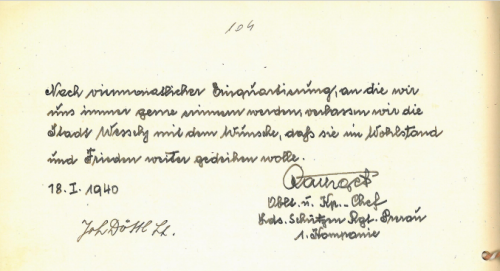 104
Nach viermonatlicher Einquartierung, an die wir
uns immer gerne erinnern werden, verlassen wir die
Stadt Wessely mit dem Wunsche, daß sie in Wohlstand
und Frieden weiter gedeihen wolle.
18. I. 1940
Oblt. u. Kp.-Chef
Lds. Schützen Rgt.
1. Kompanie
Joh Döttl Lt.